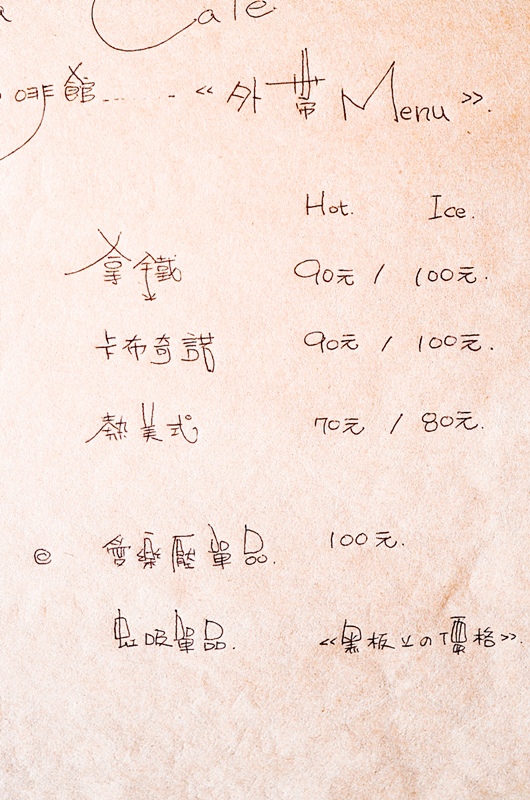 a Cafe
啡館...... - 《外帶 Menu》.
Hot. Ice.
拿鐵 90元 / 100元.
卡布奇諾 90元 / 100元.
熱美式 70元 / 80元.
@ 愛樂壓單品. 100元.
虹吸單品. 《黑板上の價格》.